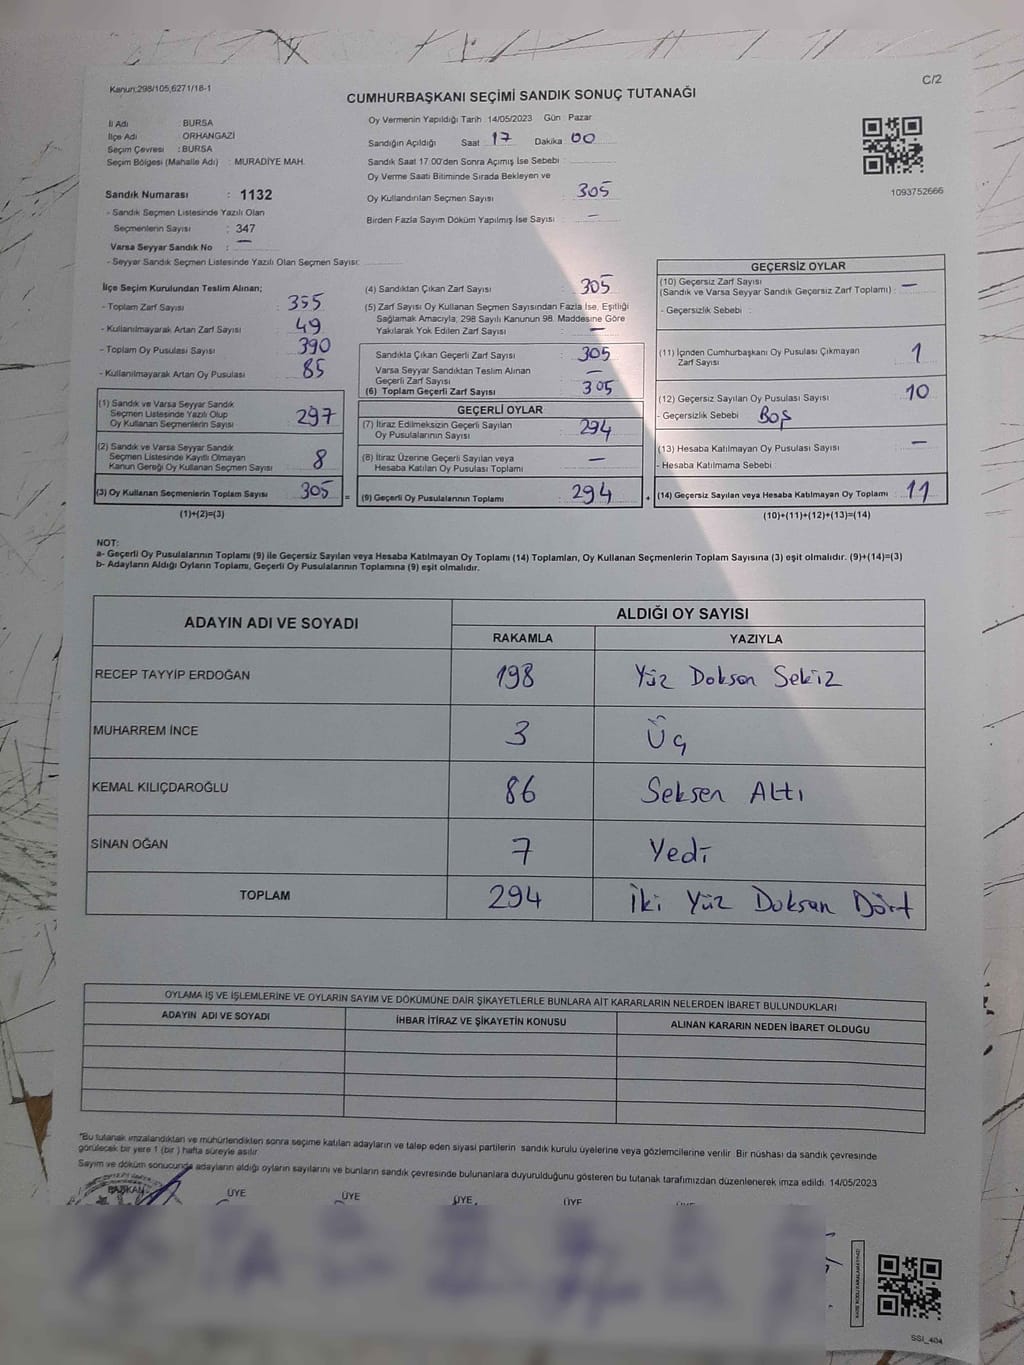 Kanun:298/105,6271/18-1
C/2
CUMHURBAŞKANI SEÇİMİ SANDIK SONUÇ TUTANAĞI
İl Adı BURSA
İlçe Adı ORHANGAZİ
Seçim Çevresi :BURSA
Seçim Bölgesi (Mahalle Adı) : MURADİYE MAH.
Sandık Numarası : 1132
- Sandık Seçmen Listesinde Yazılı Olan
Seçmenlerin Sayısı : 347
Varsa Seyyar Sandık No : —
- Seyyar Sandık Seçmen Listesinde Yazılı Olan Seçmen Sayısı:
Oy Vermenin Yapıldığı Tarih 14/05/2023 Gün Pazar
Sandığın Açıldığı Saat 17 Dakika 00
Sandık Saat 17.00'den Sonra Açımış İse Sebebi :
Oy Verme Saati Bitiminde Sırada Bekleyen ve
Oy Kullandırılan Seçmen Sayısı : 305
Birden Fazla Sayım Döküm Yapılmış İse Sayısı : —
1093752666
İlçe Seçim Kurulundan Teslim Alınan;
- Toplam Zarf Sayısı : 355
- Kullanılmayarak Artan Zarf Sayısı : 49
- Toplam Oy Pusulası Sayısı : 390
- Kullanılmayarak Artan Oy Pusulası : 85
(1) Sandık ve Varsa Seyyar Sandık
Seçmen Listesinde Yazılı Olup
Oy Kullanan Seçmenlerin Sayısı : 297
(2) Sandık ve Varsa Seyyar Sandık
Seçmen Listesinde Kayıtlı Olmayan
Kanun Gereği Oy Kullanan Seçmen Sayısı : 8
(3) Oy Kullanan Seçmenlerin Toplam Sayısı : 305 =
(1)+(2)=(3)
(4) Sandıktan Çıkan Zarf Sayısı : 305
(5) Zarf Sayısı Oy Kullanan Seçmen Sayısından Fazla İse, Eşitliği
Sağlamak Amacıyla, 298 Sayılı Kanunun 98. Maddesine Göre
Yakılarak Yok Edilen Zarf Sayısı : —
Sandıkta Çıkan Geçerli Zarf Sayısı : 305
Varsa Seyyar Sandıktan Teslim Alınan
Geçerli Zarf Sayısı : —
(6) Toplam Geçerli Zarf Sayısı : 305
GEÇERLİ OYLAR
(7) İtiraz Edilmeksizin Geçerli Sayılan
Oy Pusulalarının Sayısı : 294
(8) İtiraz Üzerine Geçerli Sayılan veya
Hesaba Katılan Oy Pusulası Toplamı : —
(9) Geçerli Oy Pusulalarının Toplamı : 294 +
GEÇERSİZ OYLAR
(10) Geçersiz Zarf Sayısı
(Sandık ve Varsa Seyyar Sandık Geçersiz Zarf Toplamı) : —
- Geçersizlik Sebebi :
(11) İçinden Cumhurbaşkanı Oy Pusulası Çıkmayan
Zarf Sayısı : 1
(12) Geçersiz Sayılan Oy Pusulası Sayısı : 10
- Geçersizlik Sebebi : Boş
(13) Hesaba Katılmayan Oy Pusulası Sayısı : —
- Hesaba Katılmama Sebebi :
(14) Geçersiz Sayılan veya Hesaba Katılmayan Oy Toplamı : 11
(10)+(11)+(12)+(13)=(14)
NOT:
a- Geçerli Oy Pusulalarının Toplamı (9) ile Geçersiz Sayılan veya Hesaba Katılmayan Oy Toplamı (14) Toplamları, Oy Kullanan Seçmenlerin Toplam Sayısına (3) eşit olmalıdır. (9)+(14)=(3)
b- Adayların Aldığı Oyların Toplamı, Geçerli Oy Pusulalarının Toplamına (9) eşit olmalıdır.
ADAYIN ADI VE SOYADI ALDIĞI OY SAYISI
RAKAMLA YAZIYLA
RECEP TAYYİP ERDOĞAN 198 Yüz Doksan Sekiz
MUHARREM İNCE 3 Üç
KEMAL KILIÇDAROĞLU 86 Seksen Altı
SİNAN OĞAN 7 Yedi
TOPLAM 294 İki Yüz Doksan Dört
OYLAMA İŞ VE İŞLEMLERİNE VE OYLARIN SAYIM VE DÖKÜMÜNE DAİR ŞİKAYETLERLE BUNLARA AİT KARARLARIN NELERDEN İBARET BULUNDUKLARI
ADAYIN ADI VE SOYADI İHBAR İTİRAZ VE ŞİKAYETİN KONUSU ALINAN KARARIN NEDEN İBARET OLDUĞU
"Bu tutanak imzalandıktan ve mühürlendikten sonra seçime katılan adayların ve talep eden siyasi partilerin sandık kurulu üyelerine veya gözlemcilerine verilir Bir nüshası da sandık çevresinde
görülecek bir yere 1 (bir ) hafta süreyle asılır
Sayım ve döküm sonucunda adayların aldığı oyların sayılarını ve bunların sandık çevresinde bulunanlara duyurulduğunu gösteren bu tutanak tarafımızdan düzenlenerek imza edildi. 14/05/2023
BAŞKAN ÜYE ÜYE ÜYE ÜYE
SSİ_404